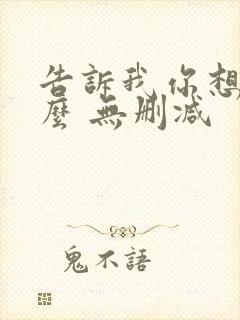 告訴我 你想
麼 無删減
鬼不語